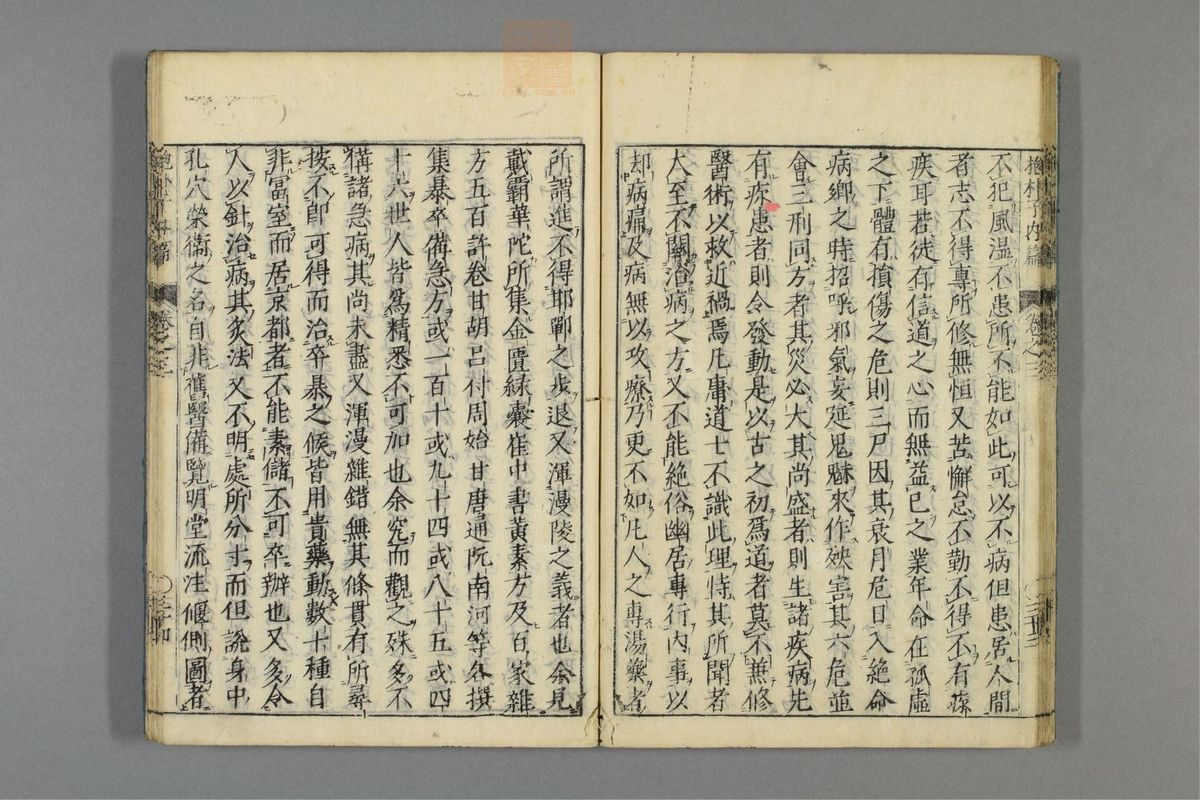 抱朴子內篇 卷之三
不犯風濕不患所不能如此可以不病但患居人間
者志不得專所修無恒又苦懈怠不勤不得不有疹
疾耳若徒有信道之心而無益己之業年命在孤虛
之下體有損傷之危則三尸因其衰月危日入絕命
病鄉之時招呼邪氣妄延鬼魅來作殃害其六危並
會三刑同方者其災必大其尚盛者則生諸疾病先
有疹患者則令發動是以古之初爲道者莫不兼修
醫術以救近禍焉凡庸道士不識此理恃其所聞者
大至不關治病之方又不能絕俗幽居專行內事以
却病痛及病無以攻療乃更不如凡人之專湯藥者
所謂進不得邯鄲之步退又渾漫陵之義者也余見
戴霸華陀所集金匱綠囊崔中書黃素方及百家雜
方五百許卷甘胡呂付周始甘唐通阮南河等各撰
集暴卒備急方或一百十或九十四或八十五或四
十六世人皆爲精悉不可加也余究而觀之殊多不
備諸急病其尚未盡又渾漫雜錯無其條貫有所尋
按不卽可得而治卒暴之候皆用貴藥動數十種自
非富室而居京都者不能素儲不可卒辦也又多令
人以針治病其灸法又不明處所分寸而但說身中
孔穴榮衞之名自非舊醫備覽明堂流注偃側圖者